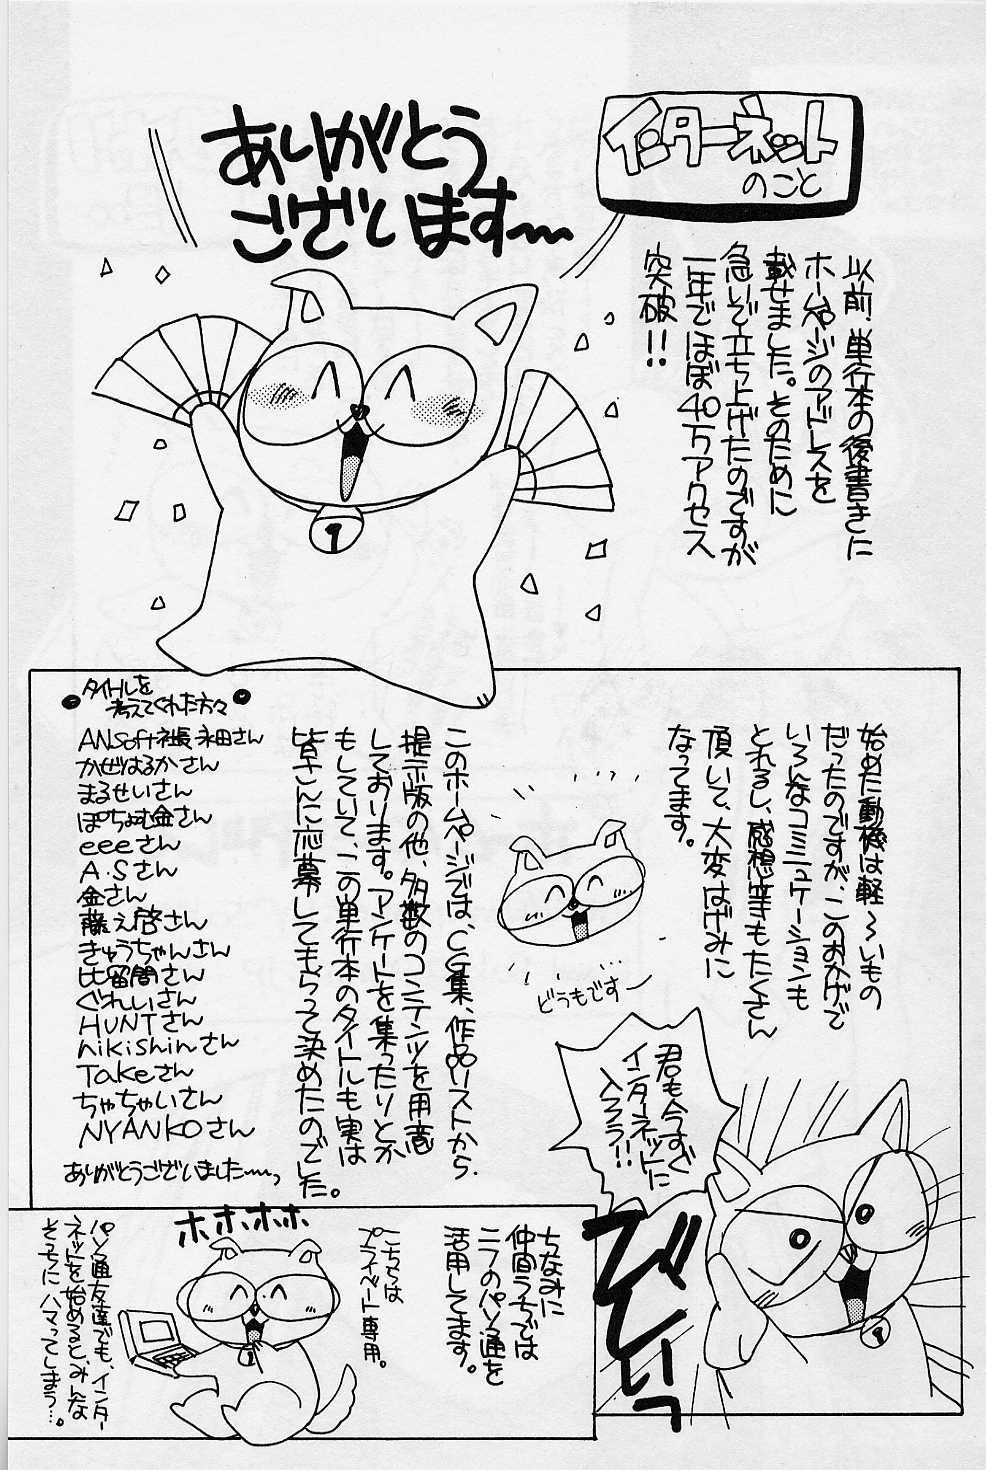 インターネット
のこと
ありがとう
ございます〜
以前、単行本の後書きに
ホームページのアドレスを
載せました。そのために
急いで立ち上げたのですが
一年でほぼ40万アクセス
突破!!
始めた動機は軽〜いもの
だったのですが、このおかげで
いろんなコミニュケーションも
とれるし、感想等もたくさん
頂いて、大変はげみに
なってます。
どうもですー
このホームページでは、CG集、作品リストから
提示版の他、多数のコンテンツを用意
しております。アンケートを集ったりとか
もしていて、この単行本のタイトルも実は
皆さんに応募してもらって決めたのでした。
タイトルを
考えてくれた方々
ANSoft社長永田さん
かぜはるかさん
まるせいさん
ぽちょむ金さん
eeeさん
A.Sさん
金さん
藤え啓さん
きゅうちゃんさん
比留間さん
ぐれいさん
HUNTさん
hikishinさん
Takeさん
ちゃちゃいさん
NYANKOさん
ありがとうございました〜っ
君も今すぐ
インターネットに
入ろう!!
びしいっ
ちなみに
仲間うちでは
ニフのパソ通を
活用してます。
こちらは
プライベート専用。
ホホホホ
パソ通友達でも、インター
ネットを始めると、みんな
そっちにハマってしまう…。